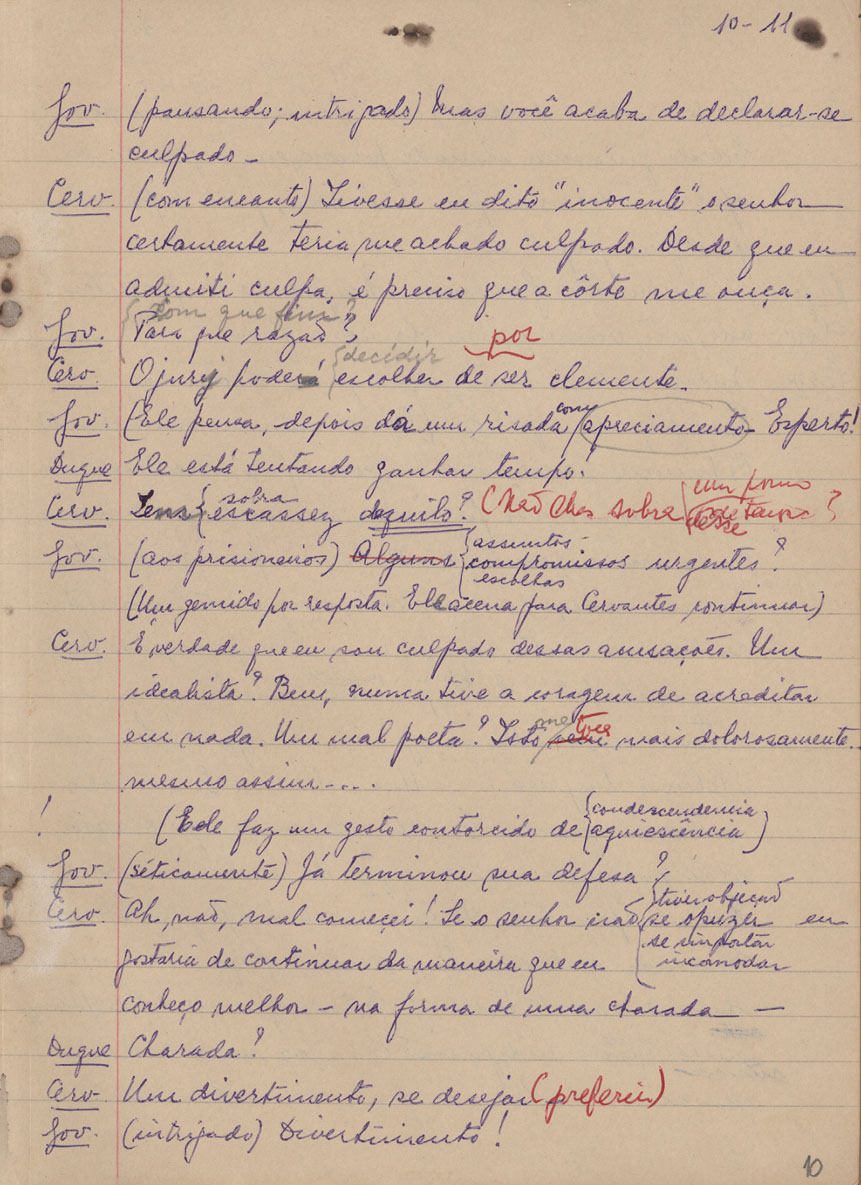 10-11
Gov. (pausando; intrigado) Mas você acaba de declarar-se
culpado -
Cerv. (com encanto) Tivesse eu dito "inocente" o senhor
certamente teria me achado culpado. Desde que eu
admiti culpa, é preciso que a côrte me ouça.
{com que fim?
Gov. Para que razão?
{decidir por
Cerv. O jury poderá escolher de ser clemente.
Gov. (Ele pensa, depois dá um risada com apreciamento - Esperto!
Duque Ele está tentando ganhar tempo.
sobra um pouco
Cerv. {escassez daquilo? (Não lhes sobra desse
assuntos
Gov. (aos prisioneiros) Alguns {compromissos urgentes?
escolhas
(Um gemido por resposta. Ele acena para Cervantes continuar)
Cerv. É verdade que eu sou culpado dessas acusações. Um
idealista? Bem, nunca tive a coragem de acreditar
me toca
em nada. Um mal poeta? Isto mais dolorosamente..
mesmo assim - ...
{condescendencia
! (Ele faz um gesto contorcido de {aquiescência)
Gov. (séticamente) Já terminou sua defesa?
{tiver objeção
Cerv. Ah, não, mal começei! Se o senhor não se opuzer eu
se importar
gostaria de continuar da maneira que eu incomodar
conheço melhor - na forma de uma charada -
Duque Charada?
Cerv. Um divertimento, se desejar (preferir)
Gov. (intrigado) Divertimento!
10